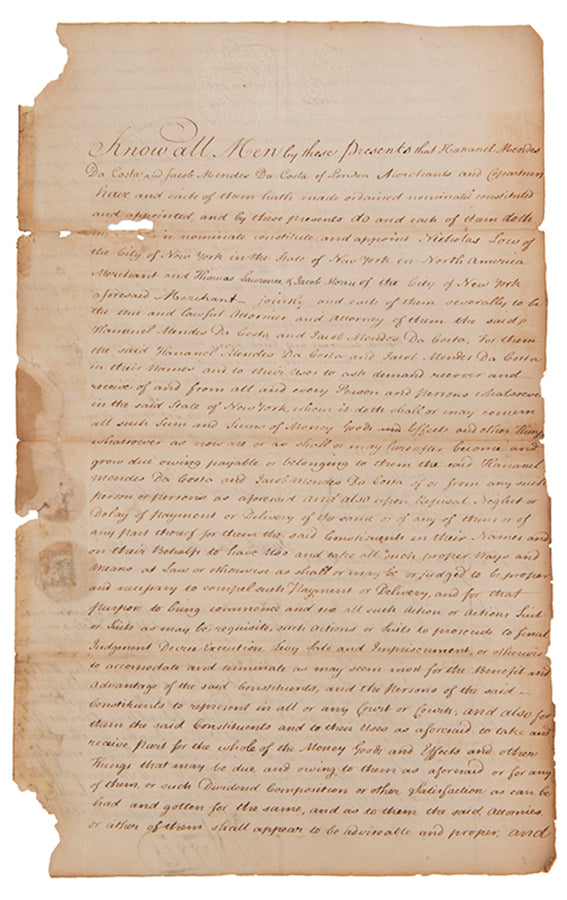 Know all Men by these Presents that Hananel Mendes
Da Costa and Jacob Mendes Da Costa of London Merchants and Copartners
have and each of them hath made ordained nominated constituted
and appointed and by these presents do and each of them doth
nominate constitute and appoint Nicholas Low of
the City of New York in the State of New York in North America
Merchant and Thomas Lawrence & Jacob of the City of New York
aforesaid Merchant jointly and each of them severally to be
the true and lawful Attornies and Attorney of them the said
Hananel Mendes Da Costa and Jacob Mendes Da Costa, for them
the said Hananel Mendes Da Costa and Jacob Mendes Da Costa
in their Names and to their Uses to ask demand recover and
receive of and from all and every Person and Persons whatsoever
in the said State of New York, whom it doth shall or may concern
all such Sum and Sums of Money Goods and Effects and other Things
whatsoever as now are or as shall or may hereafter become and
grow due owing payable or belonging to them the said Hananel
Mendes Da Costa and Jacob Mendes Da Costa of or from any such
person or persons as aforesaid and also upon Refusal Neglect or
Delay of Payment or Delivery of the same or of any of them or of
any part thereof for them the said Constituents in their Names and
on their Behalfs to have Use and take all such proper Ways and
Means at Law or otherwise as shall or may be or judged to be proper
and necessary to compel such Payment or Delivery, and for that
purpose to bring commence and all such Action or Actions Suit
or Suits as may be requisite, such Actions or Suits to prosecute to final
Judgment Decree Execution Levy Sale and Imprisonment, or otherwise
to accomodate and terminate as may seem most for the Benefit and
Advantage of the said Constituents, and the Persons of the said
Constituents to represent in all or any Court or Courts, and also for
them the said Constituents and to their Uses as aforesaid to take and
receive Part for the whole of the Money Goods and Effects and other
Things that may be due and owing to them as aforesaid or for any
of them, or such Dividend Composition or other Satisfaction as can be
had and gotten for the same, and as to them the said Attornies
or either of them shall appear to be adviseable and proper, and